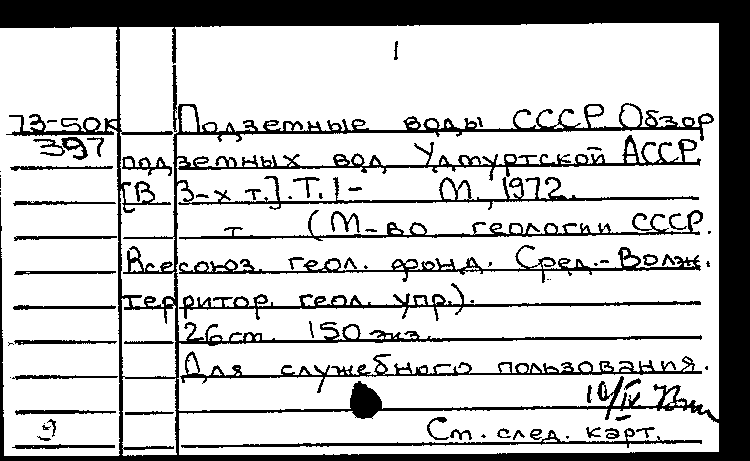 1
73-50К Подземные воды СССР Обзор
397
подземных вод Удмуртской АССР
[В 3-х т.]. Т. 1- М., 1972.
т. (М-во геологии СССР.
Всесоюз. геол. фонд. Сред.-Волж.
территор. геол. упр.).
26 см. 150 экз.
Для служебного пользования.
10/IV
9 См. след. карт.